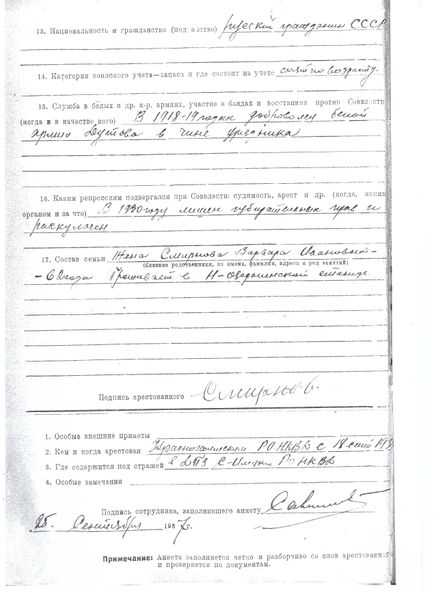 13. Национальность и гражданство (под анство) русский гражданин СССР
14. Категория воинского учета—запаса и где состоит на учете снят по возрасту.
15. Служба в белых и др. к-р. армиях, участие в бандах и восстаниях против Соввласти
(когда и в качестве кого) В 1918-19 годах доброволец белой
армии Дутова в чине урядника
16. Каким репрессиям подвергался при Соввласти: судимость, арест и др. (когда, каким
органом и за что) В 1930 году лишен избирательных прав и
раскулачен
17. Состав семьи Жена Смирнова Варвара Ивановна-
(близкие родственники, их имена, фамилия, адреса и род занятий)
- 62 года Проживает в Н-Озерненской станице.
Подпись арестованного Смирнов.
1. Особые внешние приметы
2. Кем и когда арестован РО НКВД с
3. Где содержится под стражей в С-Илецком НКВД
4. Особые замечания
Подпись сотрудника, заполнившего анкету
25. Сентября 1937 г.
Примечание: Анкета заполняется четко и разборчиво со слов арестован
и проверяется по документам.